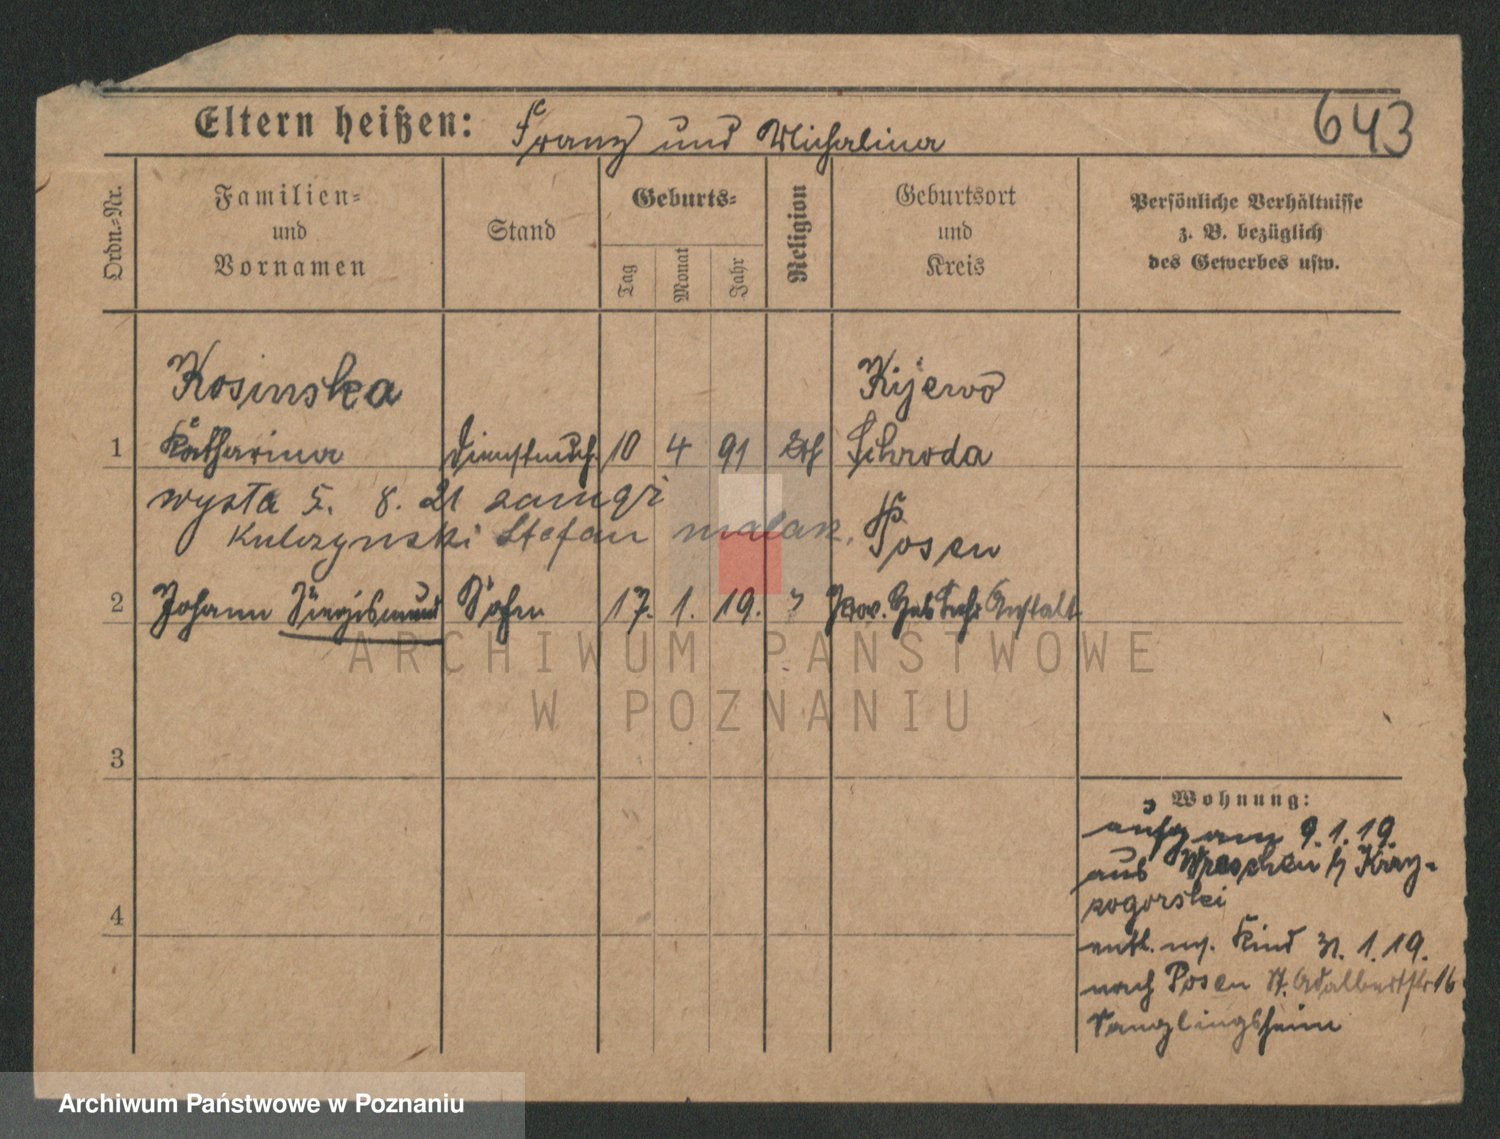 Eltern heißen: Franz und Michalina
643
Ordn.-Nr.
Familien-
und
Vornamen
Stand
Geburts-
Tag
Monat
Jahr
Religion
Geburtsort
und
Kreis
Persönliche Verhältnisse
z. B. bezüglich
des Gewerbes usw.
Kosinska
Kijewo
1 Katharina Dienstmch. 10 4 91 kth Schroda
wysta 5. 8. 21 zamęż
Kulczynski Stefan malarz.
Posen
2 Johann Siegismund Sohn 17. 1. 19. Prov. Heb Lehr Anstalt
3
4
Wohnung:
aufg am 9.1.19.
aus Wreschen b/ Krzy-
zogorski
entl. m. Kind 31.1.19.
nach Posen St. Adalbertstr 16
Säuglingsheim
ARCHIWUM PAŃSTWOWE
W POZNANIU
Archiwum Państwowe w Poznaniu